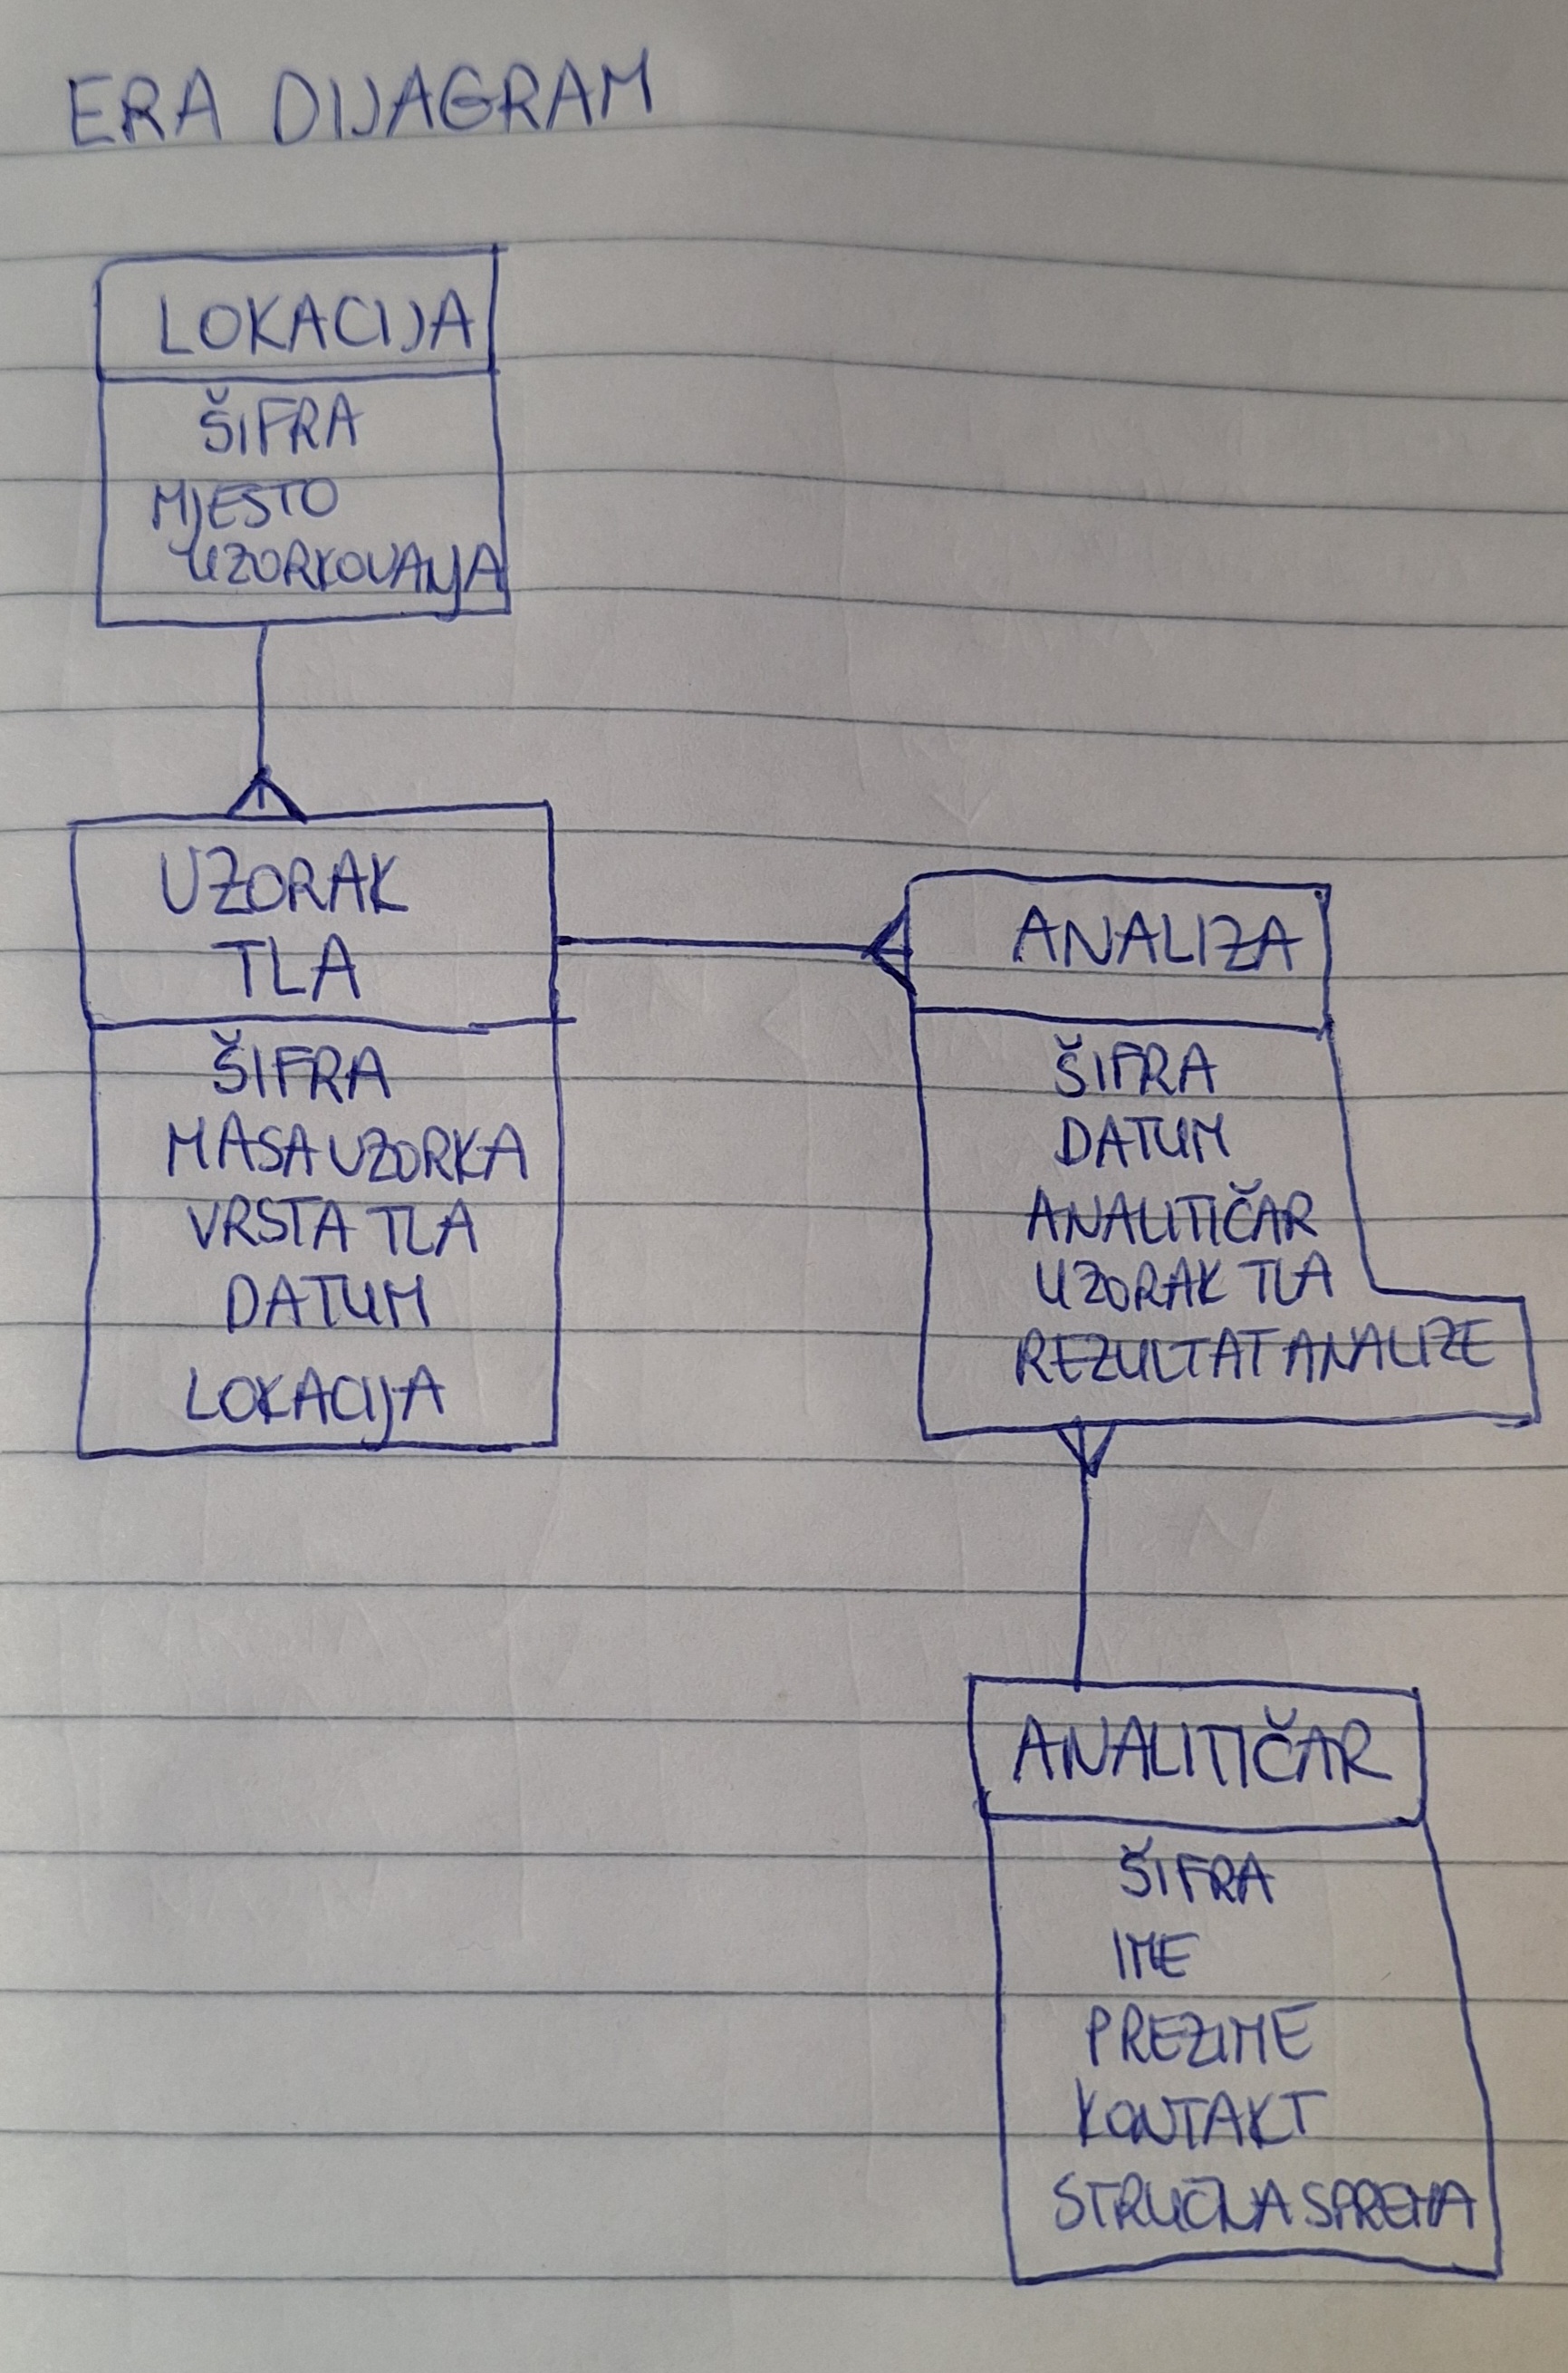 ERA DIJAGRAM
LOKACIJA
ŠIFRA
MJESTO
UZORKOVANJA
UZORAK
TLA
ŠIFRA
MASA UZORKA
VRSTA TLA
DATUM
LOKACIJA
ANALIZA
ŠIFRA
DATUM
ANALITIČAR
UZORAK TLA
REZULTAT ANALIZE
ANALITIČAR
ŠIFRA
IME
PREZIME
KONTAKT
STRUČNA SPREMA